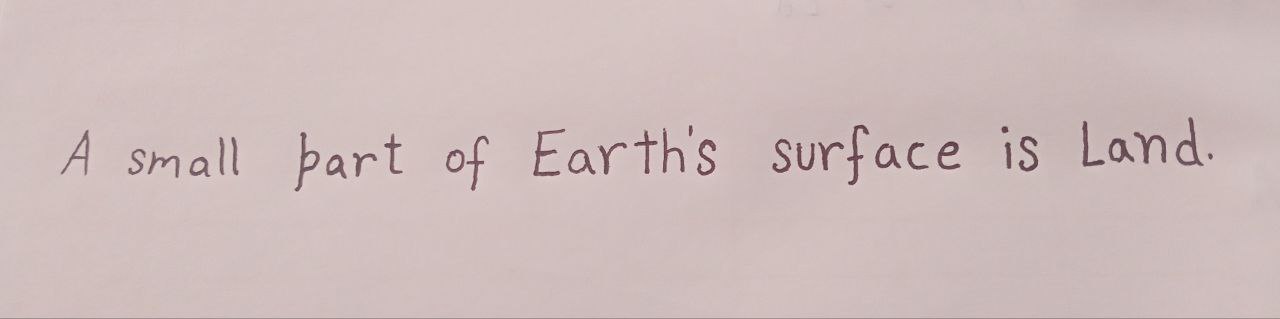 A small part of Earth's surface is Land.